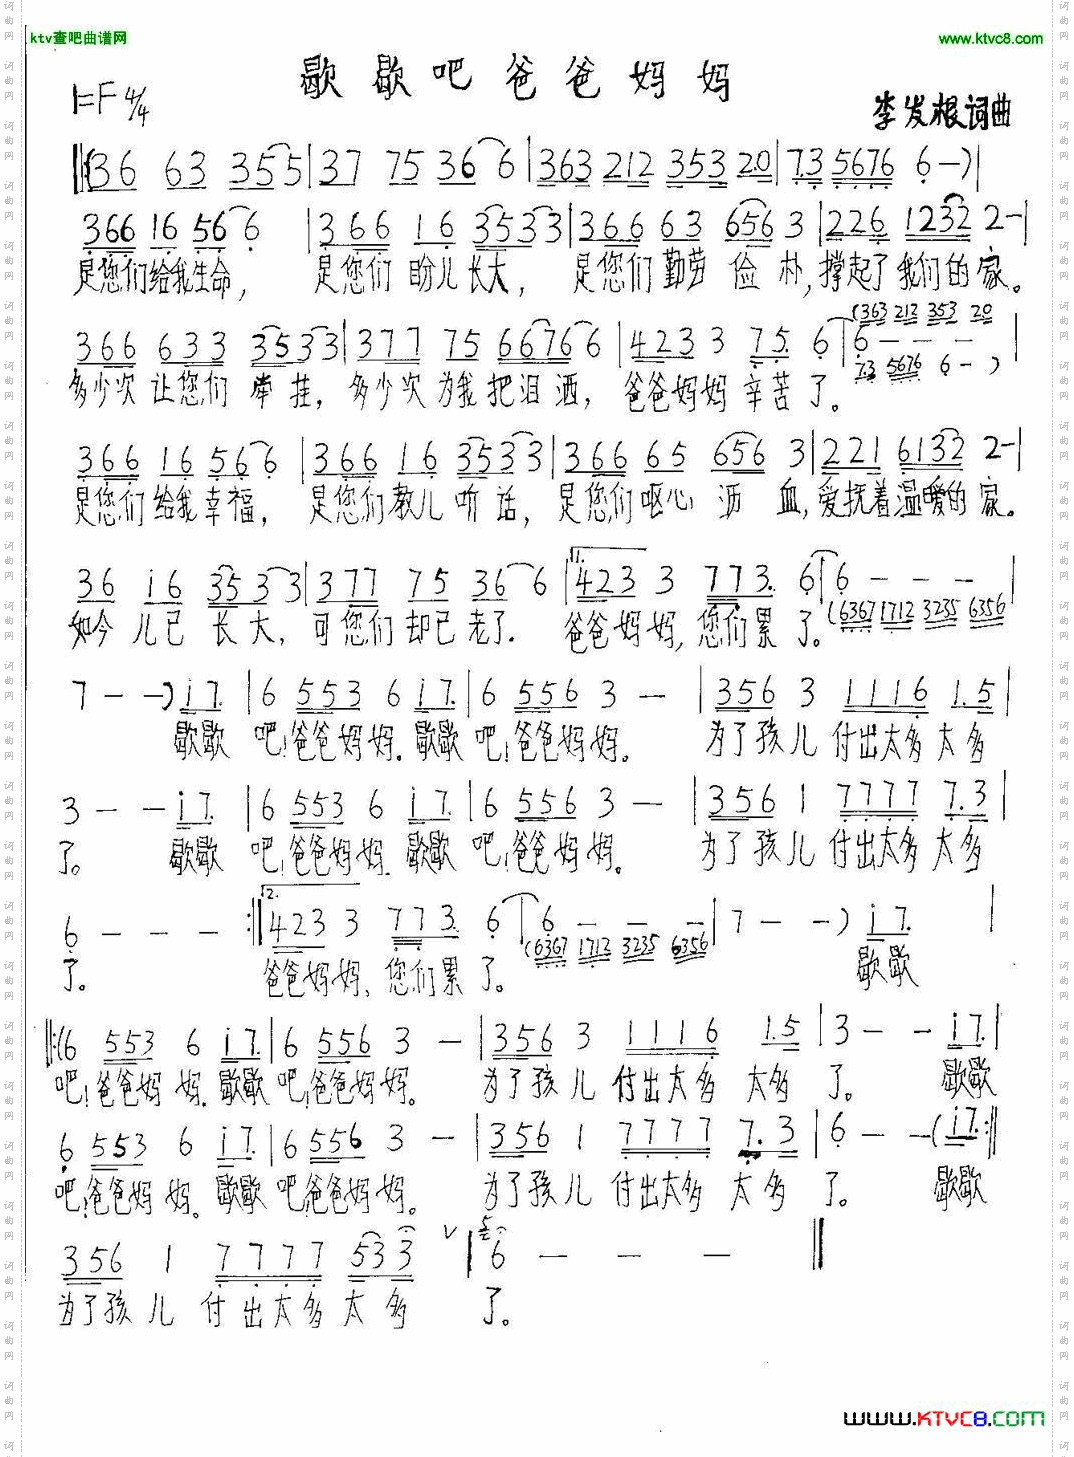 ktv查吧曲谱网 www.ktvc8.com
歇歇吧爸爸妈妈
1=F 4/4 李发根词曲
‖(36 63 355|37 75 36 6|363 212 353 2.0|7.3 5676 6-)|
366 16 56 6 |366 16 3533|366 63 656 3|226 1232 2-|
是您们给我生命, 是您们盼儿长大, 是您们勤劳俭朴,撑起了我们的家。
(363 212 353 20
366 633 3533|377 75 66766|423 3 75 6|6 - - -|
7.3 5676 6 - )
多少次让您们牵挂, 多少次为我把泪洒, 爸爸妈妈辛苦了。
366 16 566|366 16 3533|366 65 656 3|221 6132 2-|
是您们给我幸福, 是您们教儿听话, 是您们呕心沥血,爱抚着温暖的家。
1.
36 i6 3533|377 75 36 6|423 3 773. 6|6 - - -|
(6367 1712 3235 6356
如今儿已长大, 可您们却已老了. 爸爸妈妈,您们累了。
7 - -) i7.|6 553 6 i7.|6 556 3 -|356 3 1116 1.5|
歇歇吧!爸爸妈妈.歇歇吧!爸爸妈妈. 为了孩儿付出太多太多
3 - - i7.|6 553 6 i7.|6 556 3 -|356 1 7777 7.3|
了。 歇歇吧!爸爸妈妈.歇歇吧!爸爸妈妈. 为了孩儿付出太多太多
2.
6 - - - :‖423 3 773. 6|6 - - -|7 - -) i7.|
(6367 1712 3235 6356
了。 爸爸妈妈、您们累了。 歇歇
‖:(6 553 6 i7.|6 556 3 -|356 3 1116 1.5|3 - - i7.|
吧!爸爸妈妈.歇歇吧!爸爸妈妈. 为了孩儿付出太多太多了。 歇歇
6 553 6 i7.|6 556 3 -|356 1 7777 7.3|6 - -(i7.:‖
吧!爸爸妈妈.歇歇吧爸爸妈妈. 为了孩儿付出太多太多了. 歇歇
356 1 7777 533 V|5 6 - - - ‖
为了孩儿付出太多太多 了。
www.KTVC8.com